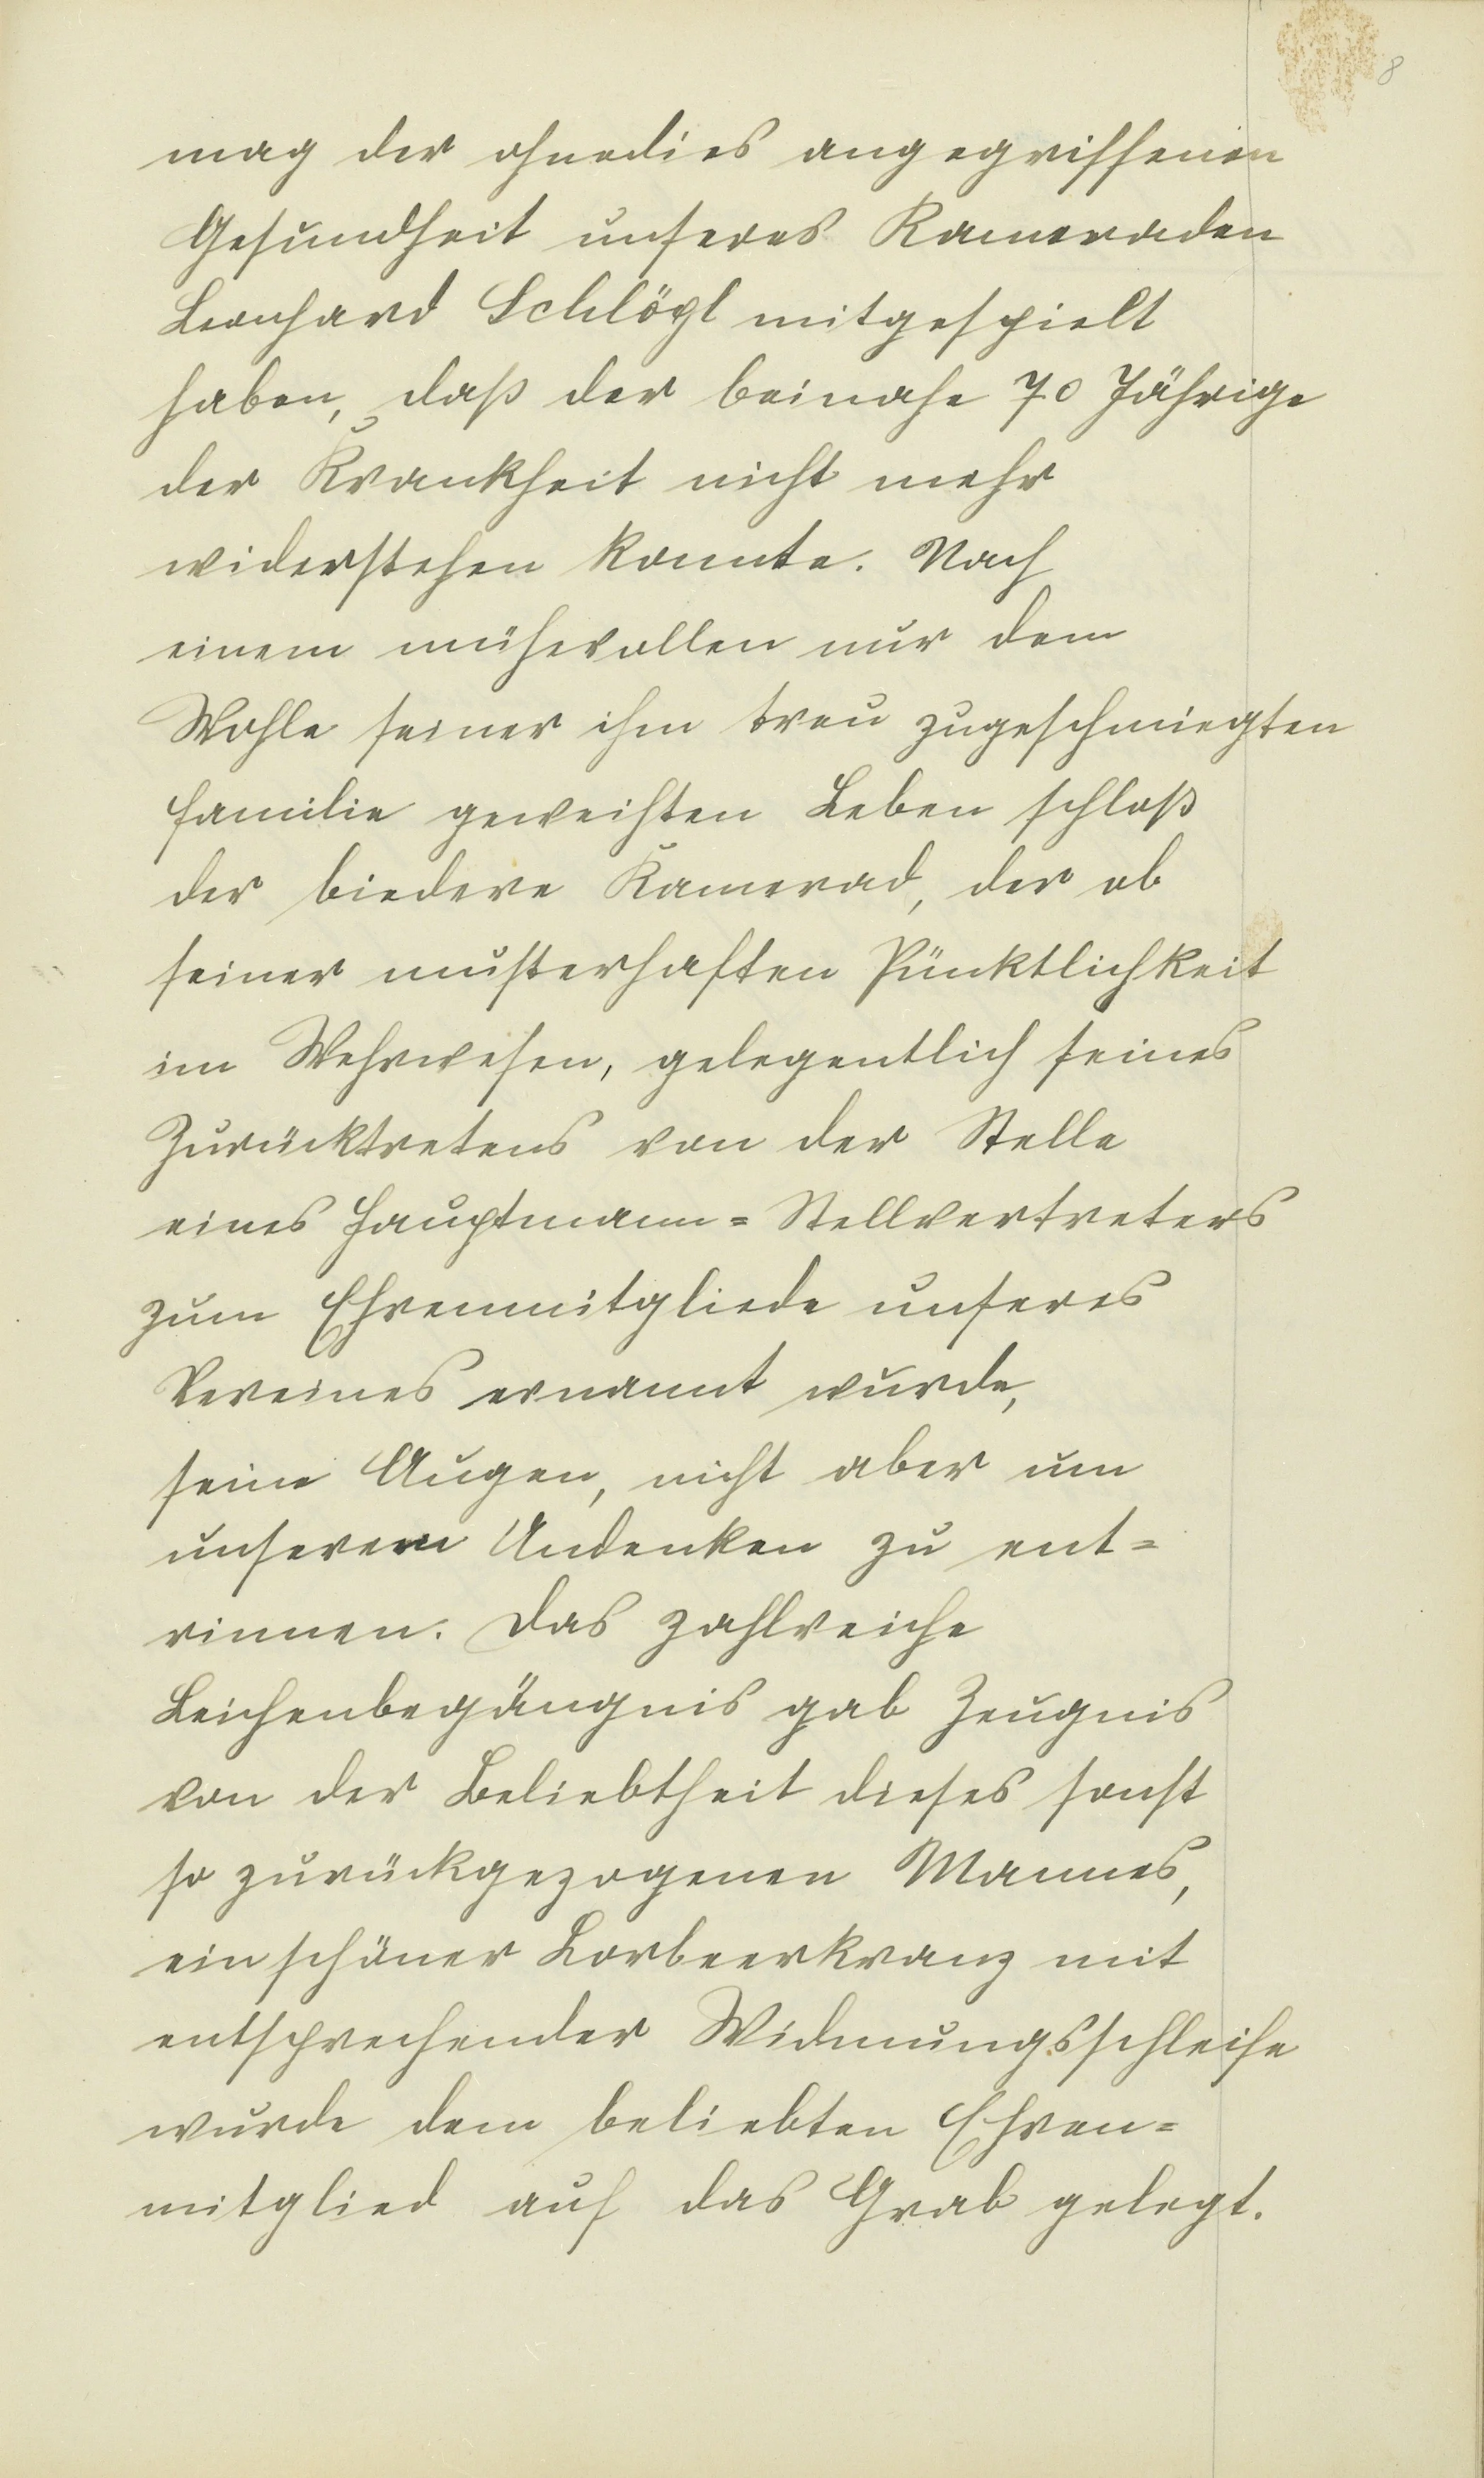 8
mag der ohnedies angegriffenen
Gesundheit unseres Kameraden
Leonhard Schlögl mitgespielt
haben, daß der beinahe 70 Jährige
der Krankheit nicht mehr
widerstehen konnte. Nach
einem mühevollen nur dem
Wohle seiner ihm treu zugeschmiegten
Familie geweihten Leben schloß
der biedere Kamerad, der ob
seiner musterhaften Pünktlichkeit
im Wehrwesen, gelegentlich seines
Zurücktretens von der Stelle
eines Hauptmann=Stellvertreters
zum Ehrenmitgliede unseres
Vereines ernannt wurde,
seine Augen, nicht aber um
unserem Andenken zu ent=
rinnen. Das zahlreiche
Leichenbegängnis gab Zeugnis
von der Beliebtheit dieses sonst
so zurückgezogenen Mannes,
ein schöner Lorbeerkranz mit
entsprechender Widmungsschleife
wurde dem beliebten Ehren=
mitglied auf das Grab gelegt.